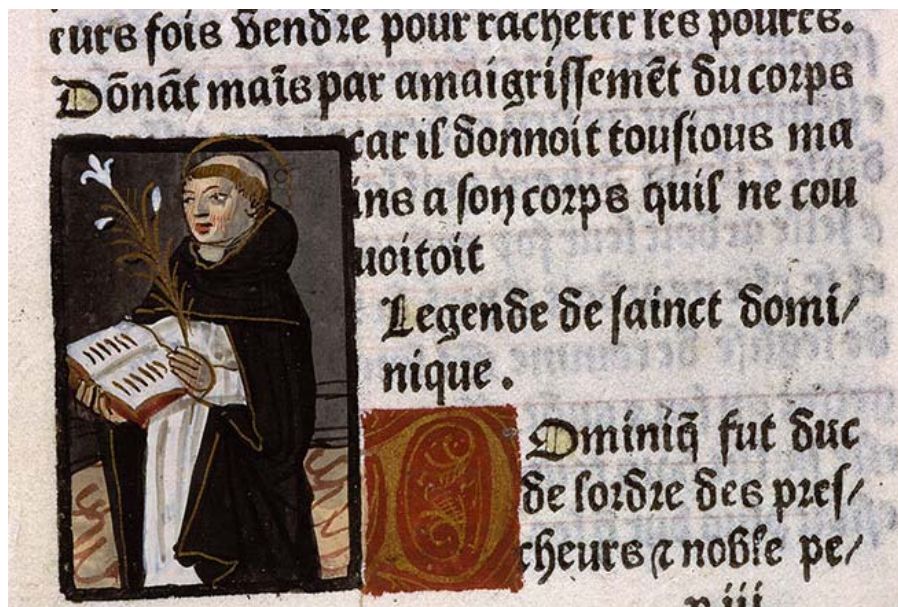 eurs fois vendre pour racheter les poures.
Dōnāt maīs par amaigrissemēt du corps
car il donnoit tousious ma
ins a son corps quil ne cou
uoitoit
Legende de sainct domi/
nique .
D Ominiq̄ fut duc
de lordre des pres/
cheurs ⁊ noble pe/
n iii